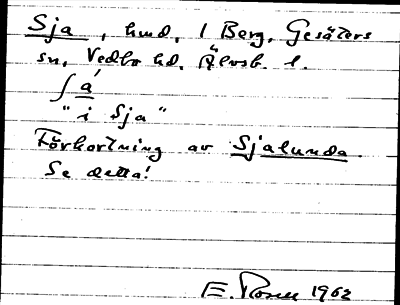 Sja, hmd, i Berg, Gesäters
sn, Vedbo hd. Älvsb. l.
ʃá
"i Sja"
Förkortning av Sjalunda
Se detta!
E. Rosell 1962